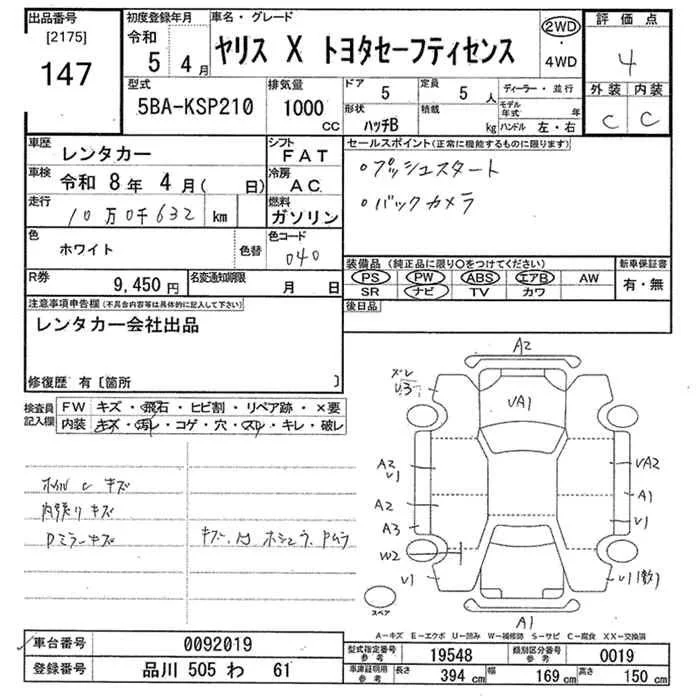 出品番号
[2175]
147
初度登録年月
令和
5 4月
車名・グレード
ヤリス X トヨタセーフティセンス
2WD
・
4WD
評価点
4
外装 内装
C C
型式
5BA-KSP210
排気量
1000
CC
ドア 5
定員 5 人
形状
ハッチB
積載
kg
ディーラー・並行
モデル年式 年
ハンドル 左・右
車歴
レンタカー
シフト
FAT
車検 令和 8年 4月( 日)
冷房
AC
走行
10万0千632 km
燃料
ガソリン
色
ホワイト
色替
色コード
040
R券
9,450円
名変通知期限
月 日
セールスポイント(正常に機能するものに限ります)
○プッシュスタート
○バックカメラ
装備品(純正品に限り○をつけてください)
PS PW ABS エアB AW
SR ナビ TV カワ
新車保証書
有・無
後日品
注意事項申告欄(不具合内容等は具体的に記入して下さい)
レンタカー会社出品
修復歴 有〔箇所 〕
検査員
記入欄
FW キズ・飛石・ヒビ割・リペア跡・×要
内装 キズ・汚レ・コゲ・穴・スレ・キレ・破レ
内張りキズ
Dミラーキズ
A2
ズレ
U3
UA1
A2
U1
UA2
A2
A1
A3
U1
W2
U1
U1(数)
A1
スペア
A-キズ E-エクボ U-凹み W-補修跡 S-サビ C-腐食 XX-交換済
車台番号
0092019
登録番号
品川 505 わ 61
型式指定番号
参考
19548
類別区分番号
参考
0019
車庫証明用
参考
長さ 394 cm
幅 169 cm
高さ 150 cm